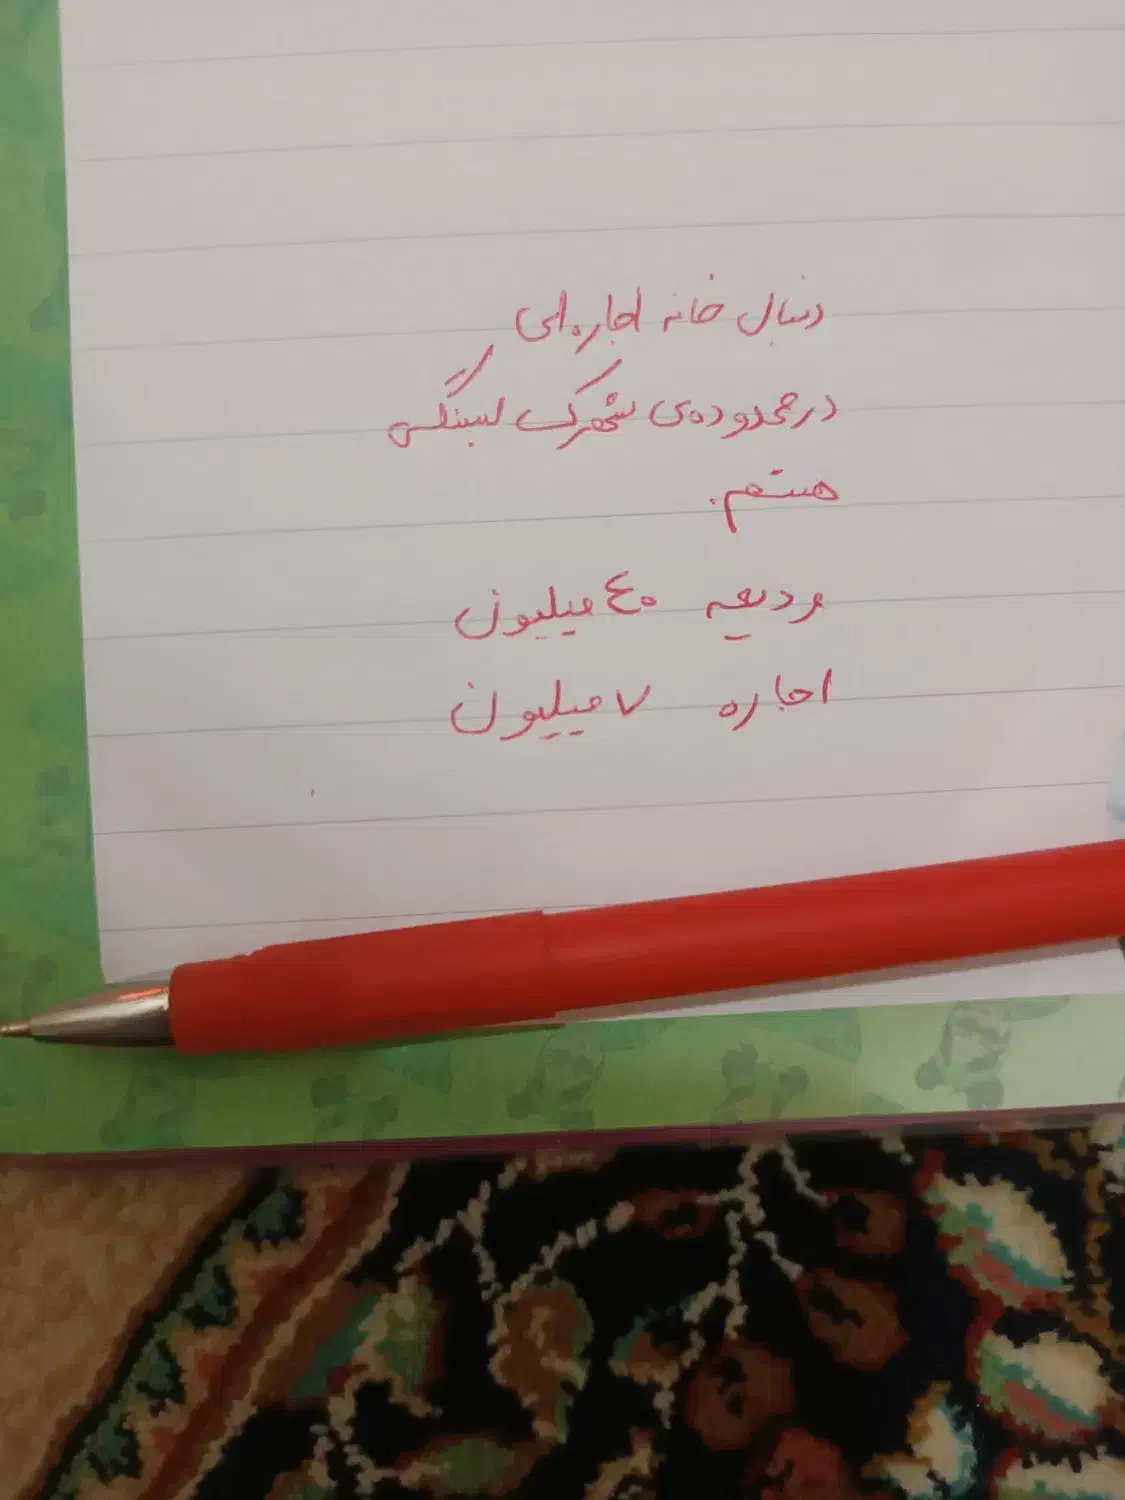 دنبال خانه اجاره‌ای
در محدوده‌ی شهرک
هستم.
ودیعه ۴۰ میلیون
اجاره ۷ میلیون